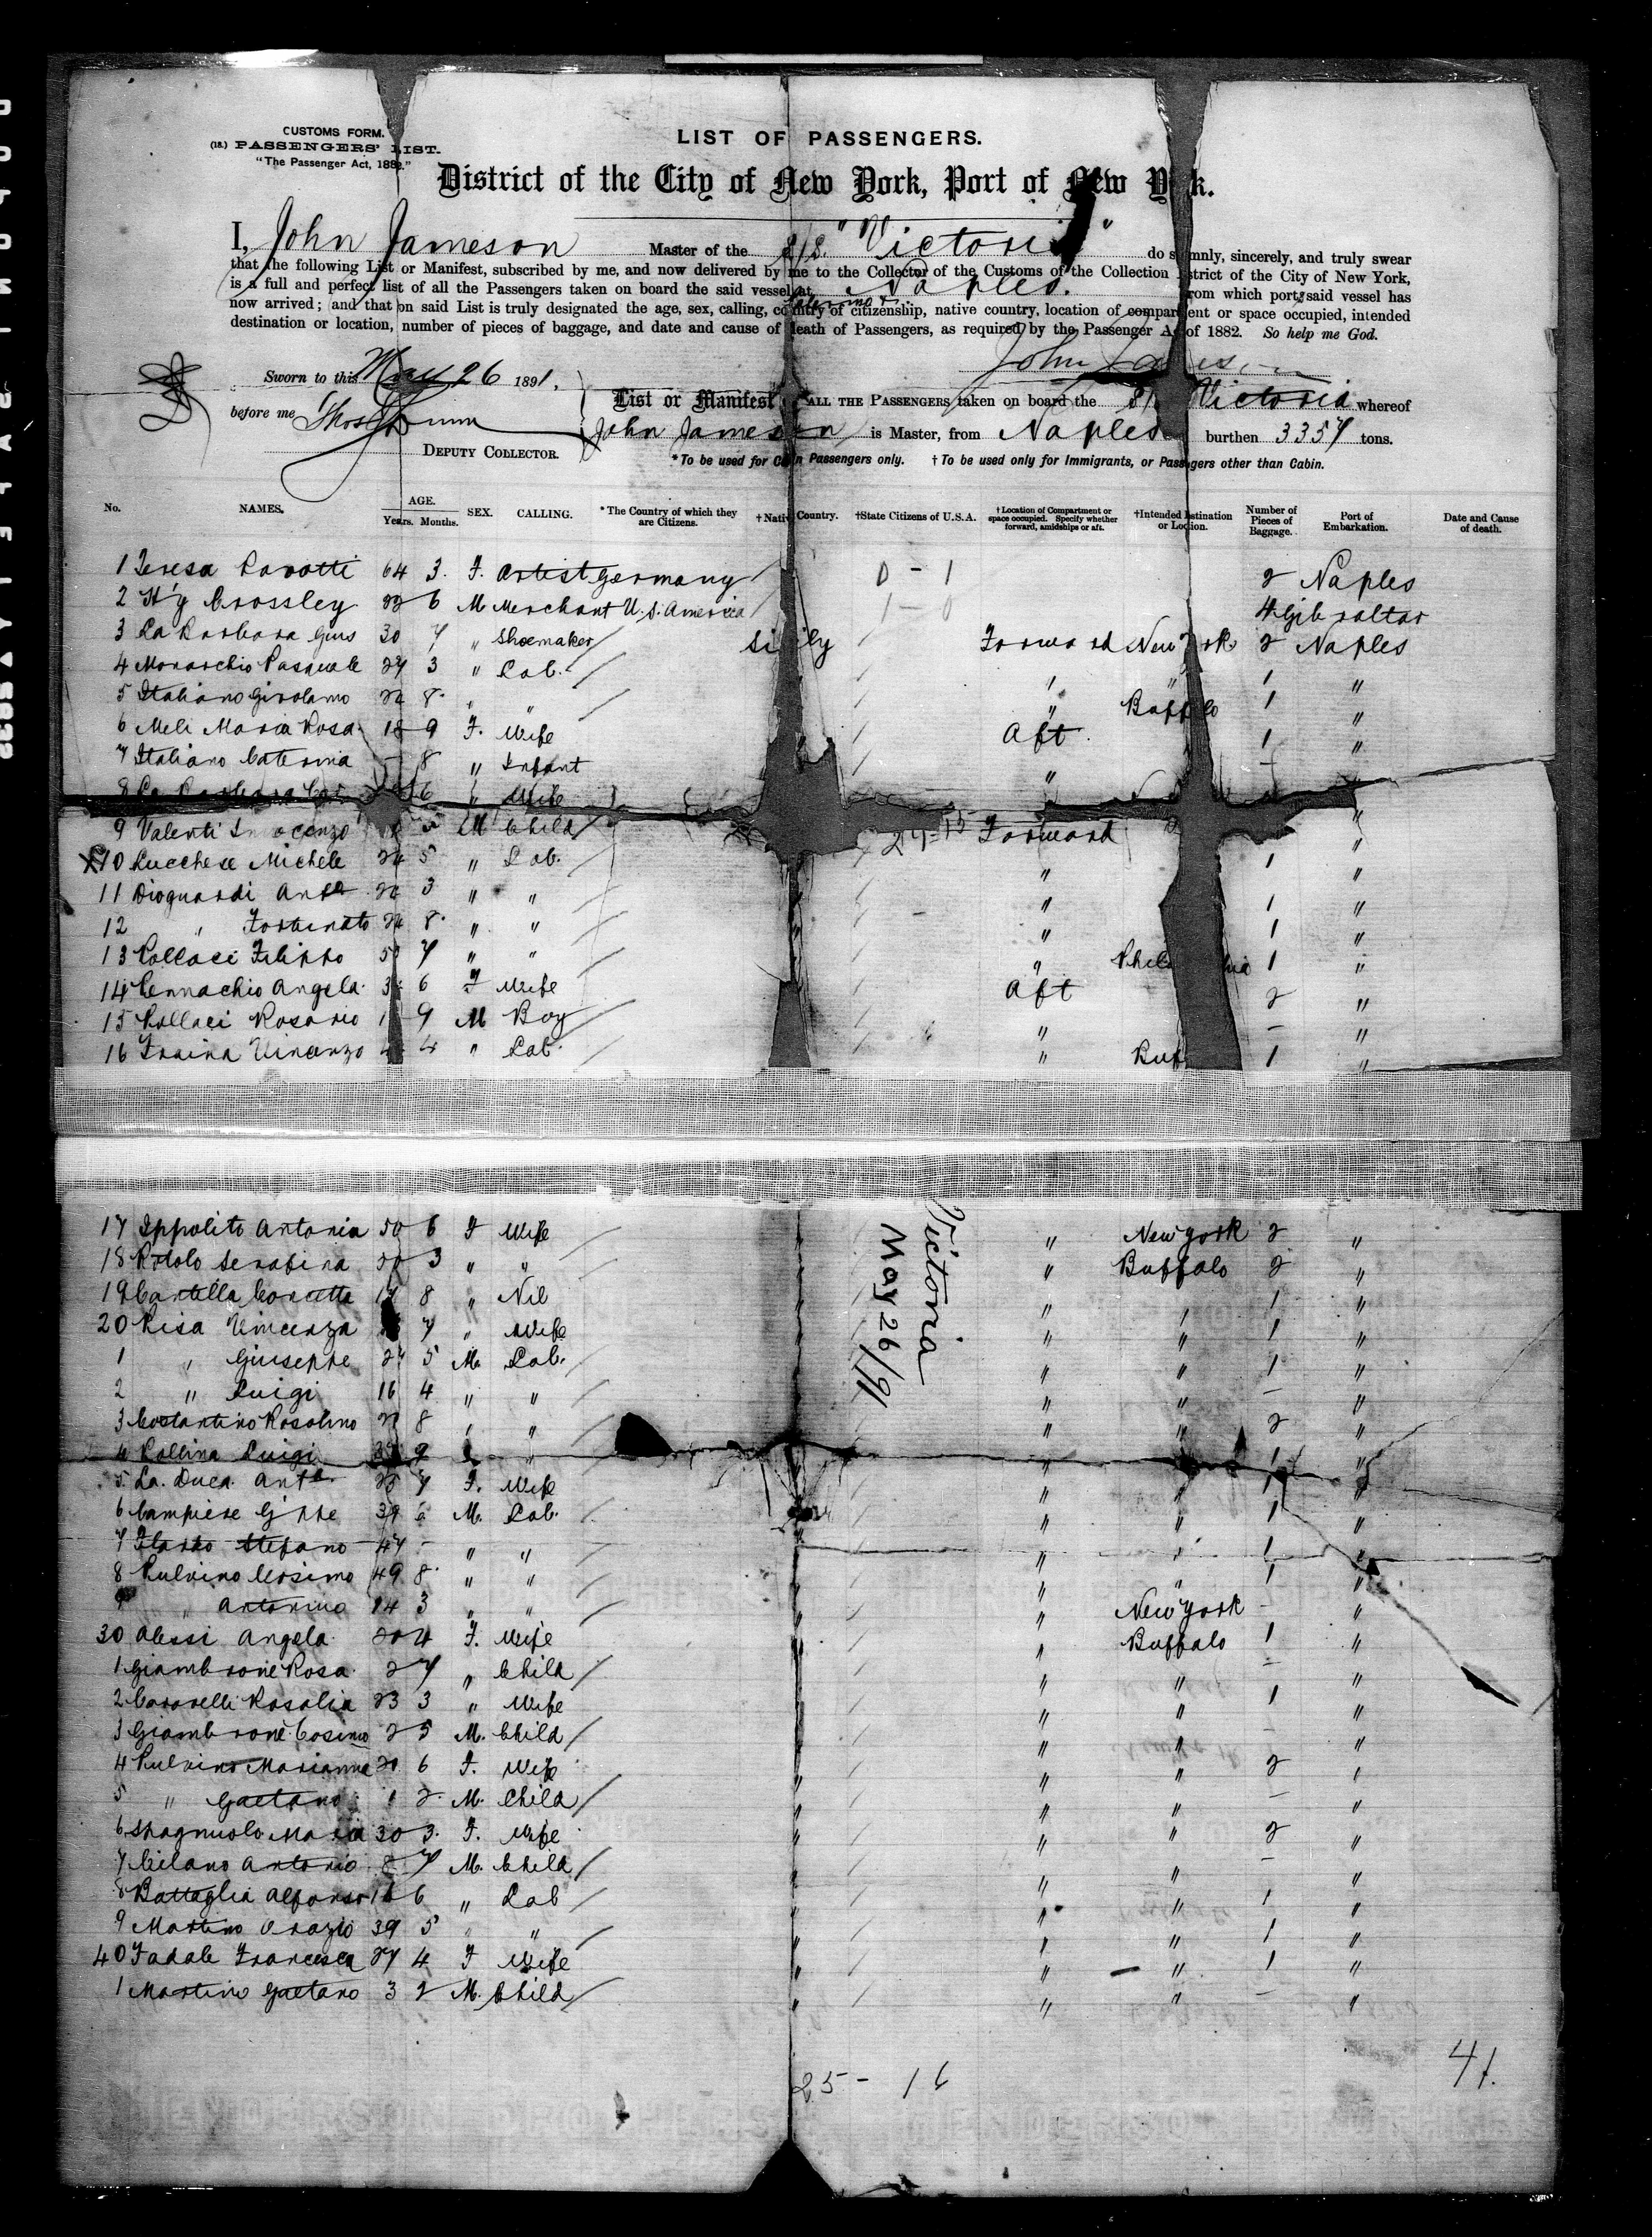 CUSTOMS FORM.
(18.) PASSENGERS' LIST.
"The Passenger Act, 1882."
LIST OF PASSENGERS.
District of the City of New York, Port of New York.
I, John Jameson Master of the S/S. "Victoria" do solemnly, sincerely, and truly swear
that the following List or Manifest, subscribed by me, and now delivered by me to the Collector of the Customs of the Collection District of the City of New York,
is a full and perfect list of all the Passengers taken on board the said vessel at Naples. from which port said vessel has
now arrived; and that on said List is truly designated the age, sex, calling, country of citizenship, native country, location of compartment or space occupied, intended
destination or location, number of pieces of baggage, and date and cause of death of Passengers, as required by the Passenger Act of 1882. So help me God.
John Jameson
Sworn to this May 26 1891,
before me Thos
DEPUTY COLLECTOR.
List or Manifest ALL THE PASSENGERS taken on board the S/S Victoria whereof
John Jameson is Master, from Naples burthen 3357 tons.
*To be used for Cabin Passengers only. †To be used only for Immigrants, or Passengers other than Cabin.
No. NAMES. AGE. Years. Months. SEX. CALLING. *The Country of which they are Citizens. †Native Country. †State Citizens of U.S.A. †Location of Compartment or space occupied. Specify whether forward, amidships or aft. †Intended Destination or Location. Number of Pieces of Baggage. Port of Embarkation. Date and Cause of death.
1 Teresa 64 3. F. Artist Germany 0 - 1 2 Naples
2 H'y Crossley 6 M Merchant U.S. America 1 - 0 4 Gibraltar
3 La Barbara Gius 30 7 " Shoemaker Sicily Forward New York 2 Naples
4 Monarchio Pasquale 27 3 " Lab. " " 1 "
5 Italiano Girolamo 8 " " " Buffalo 1 "
6 Meli Maria Rosa 18 9 F. Wife Aft 1 "
7 Italiano Caterina - 8 " Infant " - "
8 La Barbara 6 " Wife
9 Valenti Innocenzo M Child Forward "
10 Lucchese Michele 5 " Lab. " 1 "
11 Dioguardi Ant° 3 " " " 1 "
12 " Fortunato 8 " " " 1 "
13 Pollaci Filippo 7 " " " Philadelphia 1 "
14 Pennachio Angela 6 F Wife Aft 2 "
15 Pollaci Rosario 9 M Boy " - "
16 Fraina Vincenzo 4 " Lab. " Buf 1 "
17 Ippolito Antonia 50 6 F Wife " New York 2 "
18 Rotolo Serafina 3 " " " Buffalo 2 "
19 Cartella Concetta 17 8 " Nil " " 1 "
20 Pisa Vincenza 7 " Wife " " 1 "
1 " Giuseppe 5 M. Lab. " " 1 "
2 " Luigi 16 4 " " " " - "
3 Costantino Rosolino 8 " " " " 2 "
4 Pollina Luigi 9 " " " " 1 "
5 La Duca Ant 7 F. Wife " " 1 "
6 Campiese G ppe 39 6 M. Lab. " " 1 "
7 Stefano 47 - " " " " 1 "
8 Pulvino Cosimo 49 8 " " " " 1 "
9 " Antonino 14 3 " " " New York - "
30 Alessi Angela 20 4 F. Wife " Buffalo 1 "
1 Giambrone Rosa 2 7 " Child " " - "
2 Cararelli Rosalia 23 3 " Wife " " 1 "
3 Giambrone Cosimo 2 5 M. Child " " - "
4 Pulvino Marianna 20 6 F. Wife " " 2 "
5 " Gaetano 1 2 M. Child " " - "
6 Spagnuolo Maria 30 3. F. Wife " " 2 "
7 Cilano Antonio 8 7 M. Child " " - "
8 Battaglia Alfonso 16 6 " Lab " " 1 "
9 Martino Orazio 39 5 " " " " 1 "
40 Fadale Francesca 27 4 F Wife " " 1 "
1 Martino Gaetano 3 2 M. Child " " - "
Victoria
May 26/91
25 - 16
41.